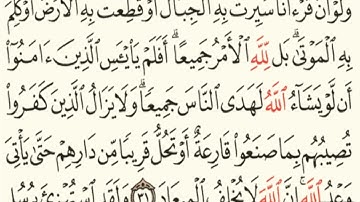 وَلَوْ أَنَّ قُرْءَانًا سُيِّرَتْ بِهِ ٱلْجِبَالُ أَوْ قُطِّعَتْ بِهِ ٱلْأَرْضُ أَوْ كُلِّمَ
بِهِ ٱلْمَوْتَىٰ ۗ بَل لِّلَّهِ ٱلْأَمْرُ جَمِيعًا ۗ أَفَلَمْ يَا۟يْـَٔسِ ٱلَّذِينَ ءَامَنُوٓا۟
أَن لَّوْ يَشَآءُ ٱللَّهُ لَهَدَى ٱلنَّاسَ جَمِيعًا ۗ وَلَا يَزَالُ ٱلَّذِينَ كَفَرُوا۟
تُصِيبُهُم بِمَا صَنَعُوا۟ قَارِعَةٌ أَوْ تَحُلُّ قَرِيبًا مِّن دَارِهِمْ حَتَّىٰ يَأْتِىَ
وَعْدُ ٱللَّهِ ۚ إِنَّ ٱللَّهَ لَا يُخْلِفُ ٱلْمِيعَادَ ٣١ وَلَقَدِ ٱسْتُهْزِئَ بِرُسُلٍ